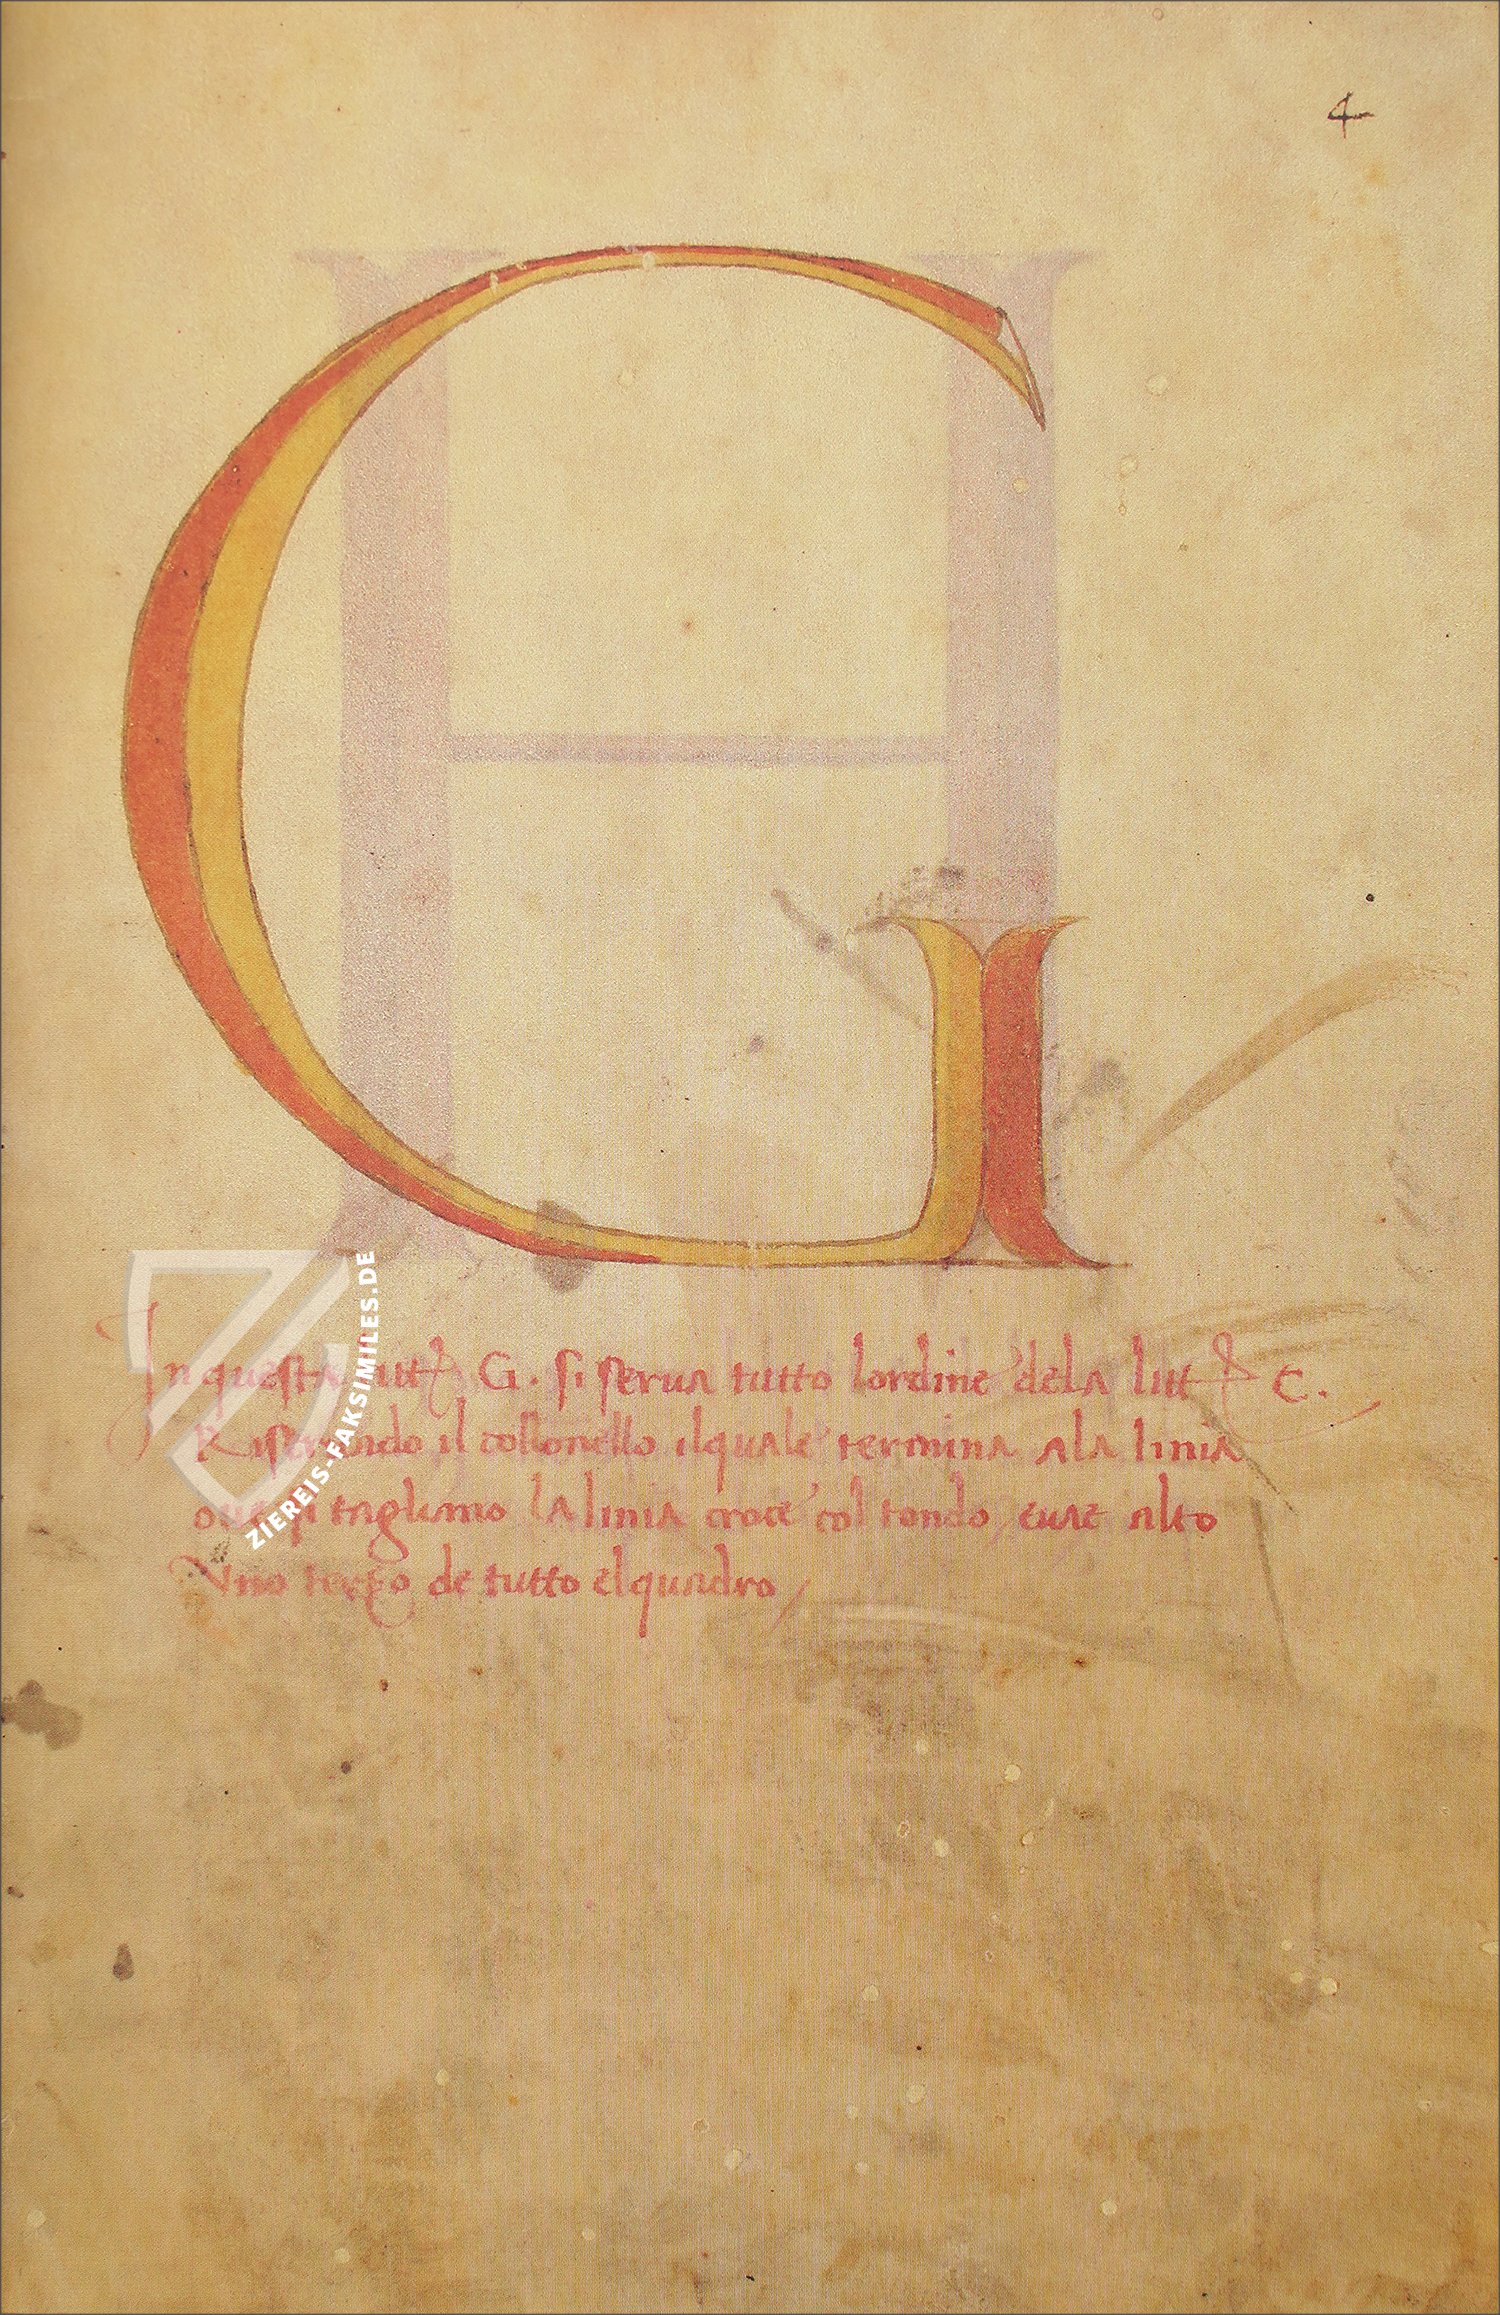 4
G
In questa litt G. si serua tutto lordine dela litt C.
Riseruando il collonello ilquale termina ala linia
oue si tagliano la linia croce col tondo, euae alto
Vno terzo de tutto elquadro
ZIEREIS-FAKSIMILES.DE